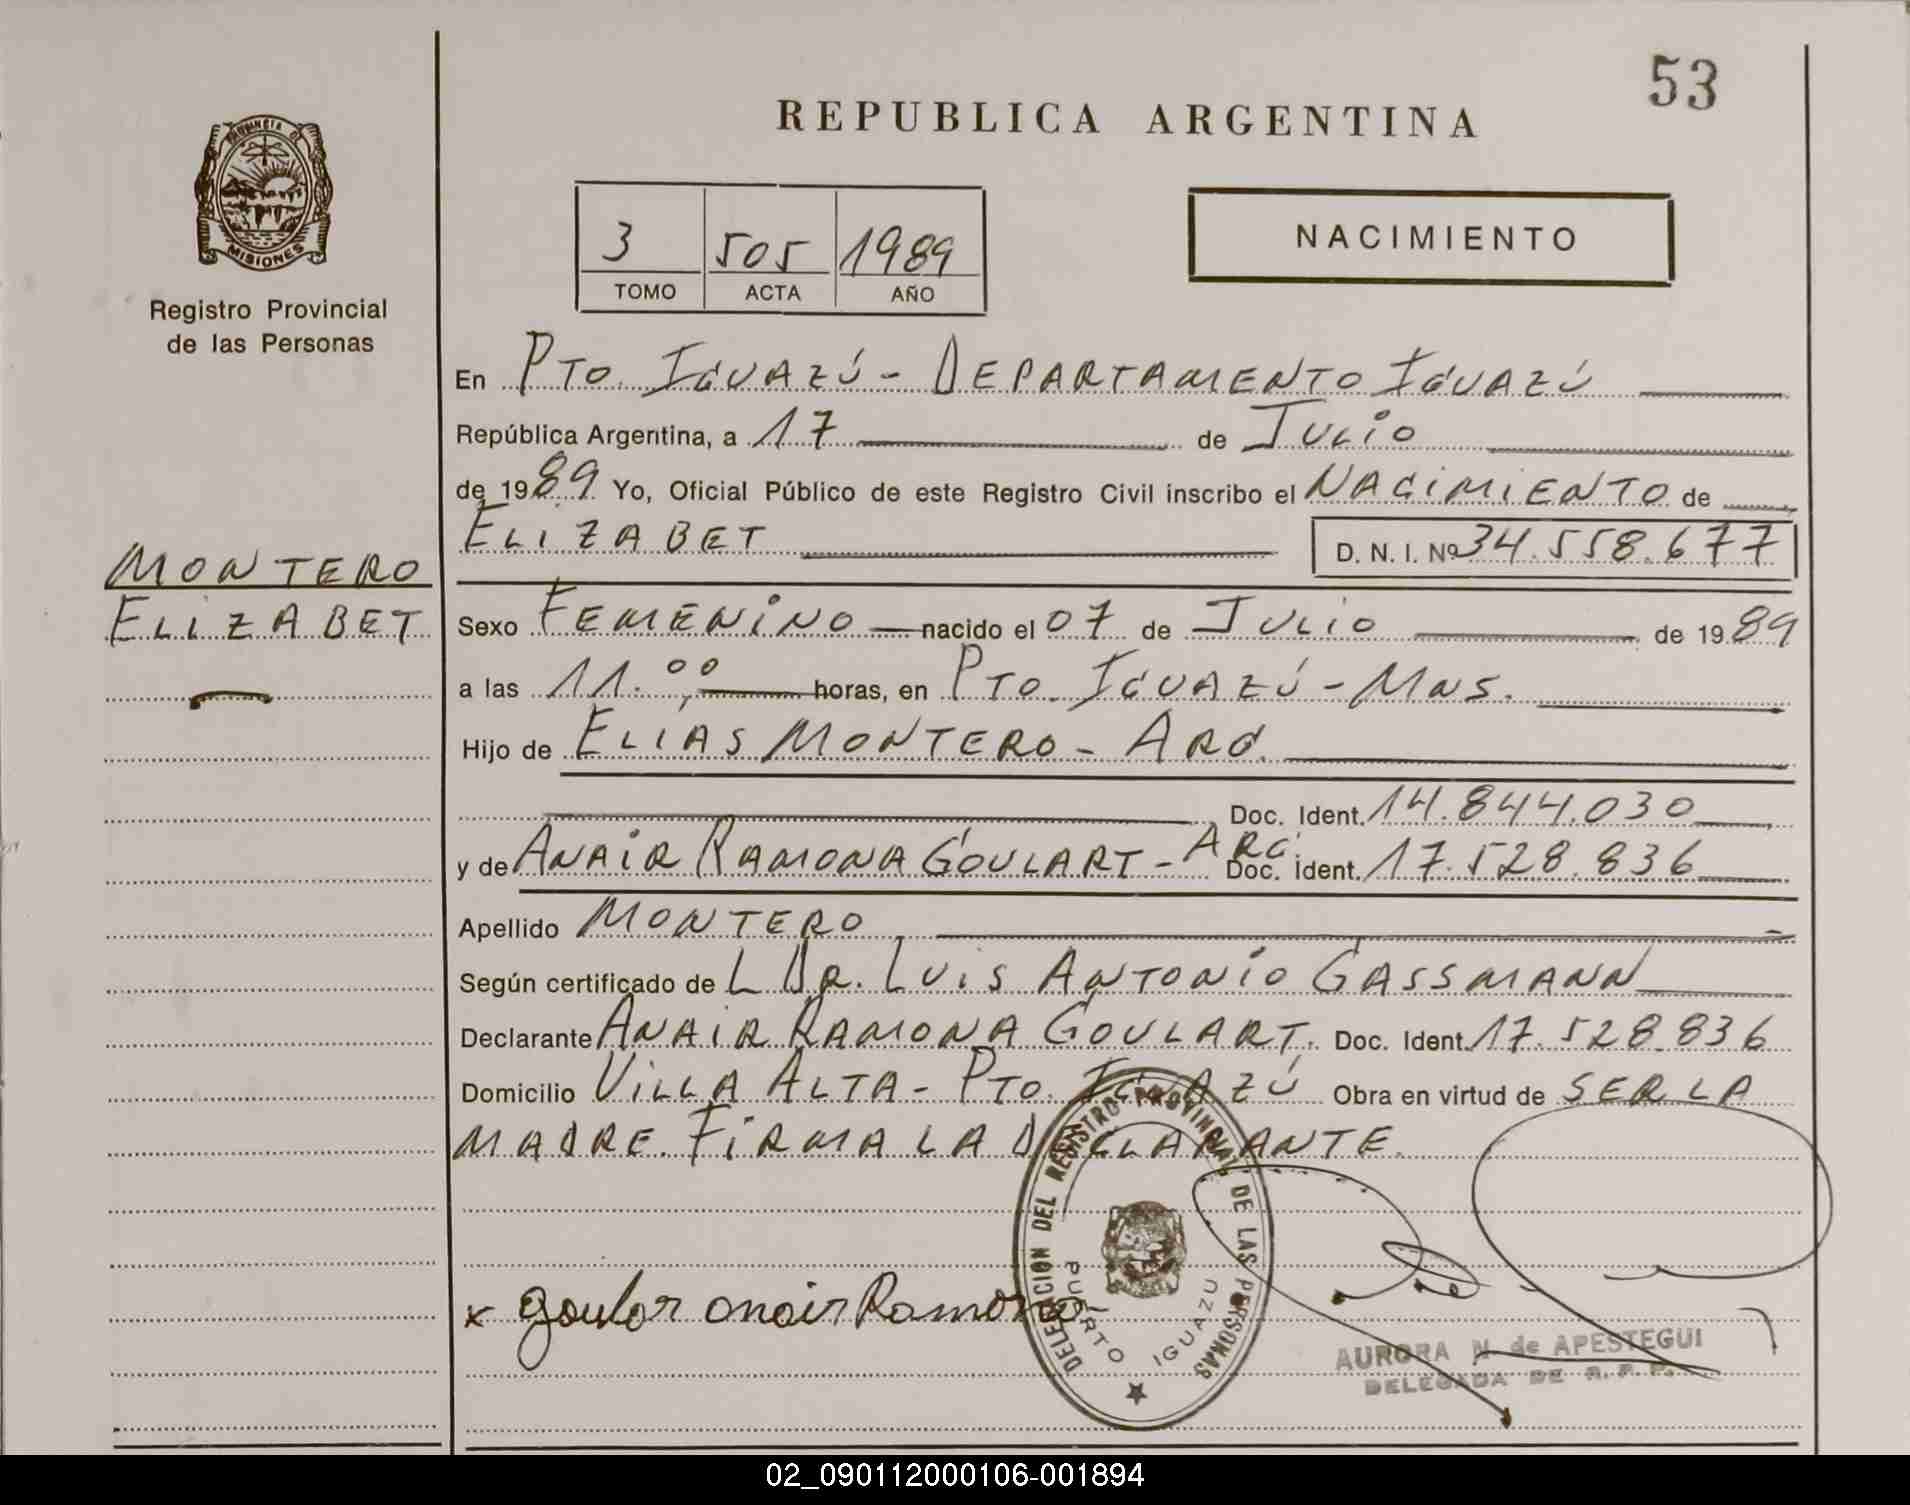 53
REPUBLICA ARGENTINA
PROVINCIA DE
MISIONES
Registro Provincial
de las Personas
3 505 1989
TOMO ACTA AÑO
NACIMIENTO
En PTO. IGUAZÚ - DEPARTAMENTO IGUAZÚ
República Argentina, a 17 de JULIO
de 1989 Yo, Oficial Público de este Registro Civil inscribo el NACIMIENTO de
ELIZABET D. N. I. Nº 34.558.677
MONTERO
ELIZABET
Sexo FEMENINO nacido el 07 de JULIO de 1989
a las 11.00, horas, en PTO. IGUAZÚ - MNS.
Hijo de ELÍAS MONTERO - ARG.
Doc. Ident. 14.844.030
y de ANAIR RAMONA GOULART - ARG. Doc. Ident. 17.528.836
Apellido MONTERO
Según certificado de L DR. LUIS ANTONIO GASSMANN
Declarante ANAIR RAMONA GOULART. Doc. Ident. 17.528.836
Domicilio VILLA ALTA - PTO. IGUAZÚ Obra en virtud de SER LA
MADRE. FIRMA LA DECLARANTE.
DELEGACION DEL REGISTRO PROVINCIAL DE LAS PERSONAS
PUERTO IGUAZU
x goular anair Ramona
AURORA N. de APESTEGUI
DELEGADA DE R. P. P.
02_090112000106-001894